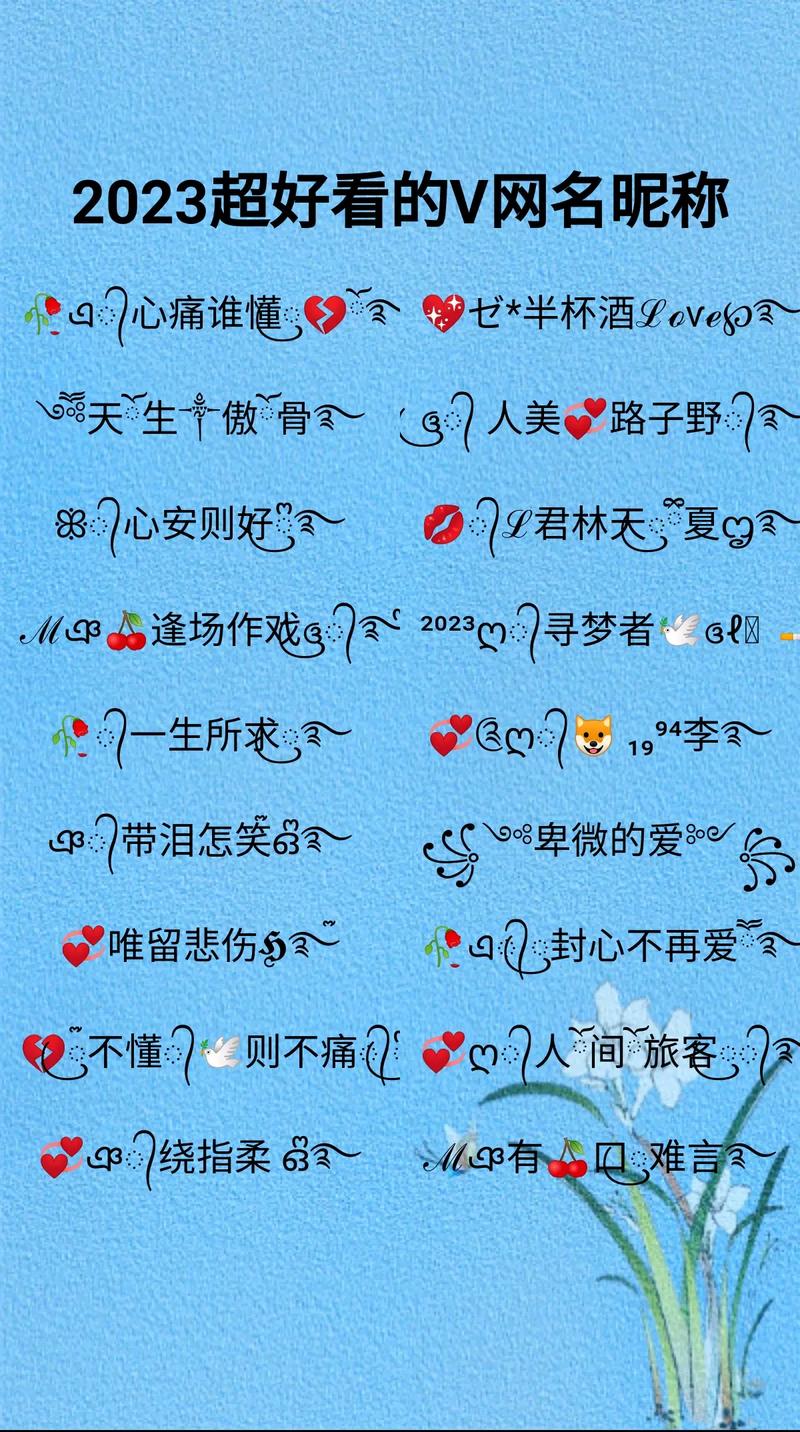 2023超好看的V网名昵称
🥀এ᭄心痛谁懂💔ོ࿐
💖ゼ*半杯酒ℒℴνℯ℘࿐
༺天ོ生༒傲ོ骨࿐
ঞ᭄ 人美💞路子野᭄࿐
ꕥ᭄心安则好࿐
💋᭄ℒ君林天ꦿ夏ღ࿐
ℳঞ🍒逢场作戏ঞ᭄࿐
²⁰²³ღ᭄寻梦者🕊ঞℓ
🥀᭄一生所求ꦿ࿐
💞ღ᭄🐶 ₁₉⁹⁴李࿐
ঞ᭄带泪怎笑ꦿ࿐
༺卑微的爱༻
💞唯留悲伤ℌ࿐
🥀এ᭄ꦿ封心不再爱ོ࿐
💔ꦿ不懂᭄🕊则不痛᭄
💞ღ᭄人ོ间ོ旅客ꦿ᭄࿐
💞ঞ᭄绕指柔 ꦿ࿐
ℳঞ有🍒口ꦿ难言࿐